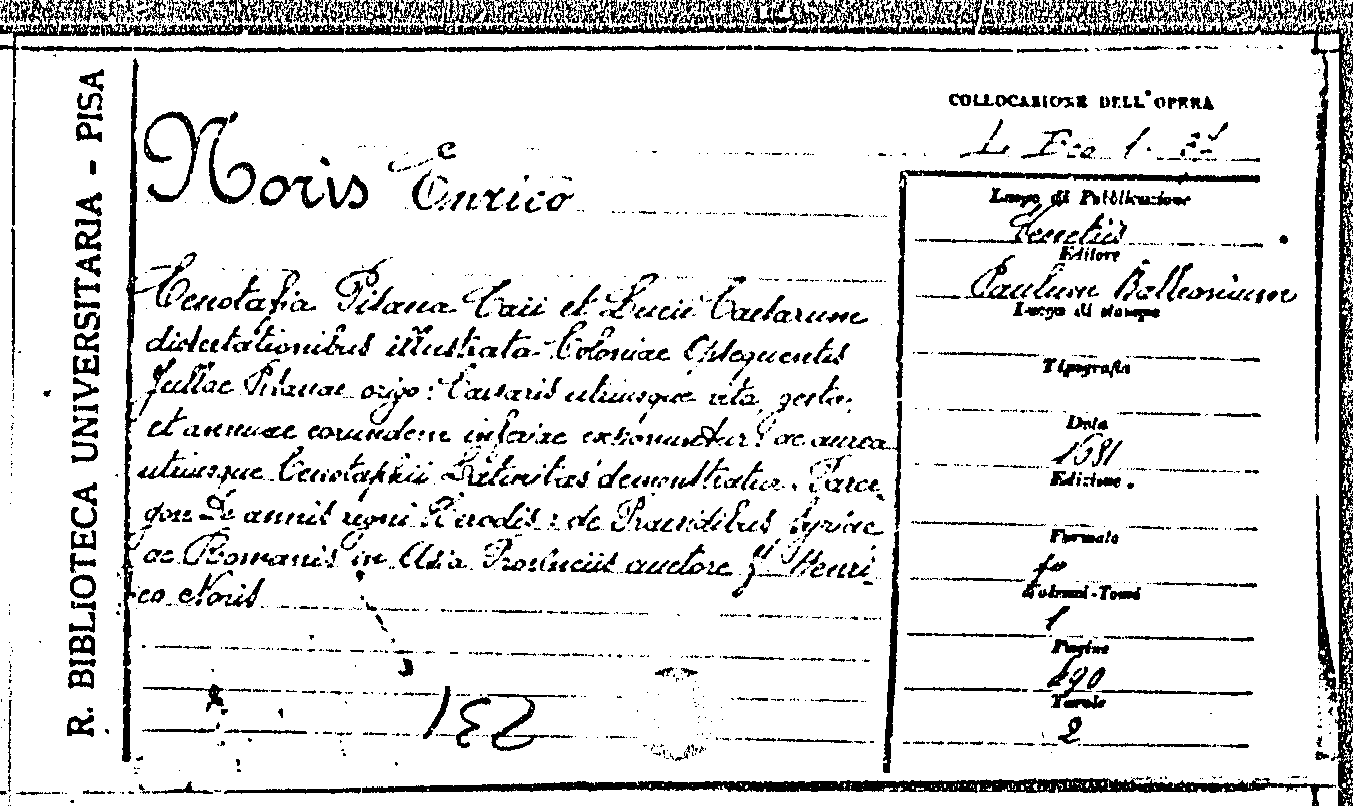 R. BIBLIOTECA UNIVERSITARIA - PISA
COLLOCAZIONE DELL'OPERA
Noris Enrico
Cenotafia Pisana Caii et Lucii Caesarum
dissertationibus illustrata. Coloniae Obsequentis
Juliae Pisanae origo: Caesaris utriusque vita gesta,
et annuae eorundem inferiae exponuntur: ac aurea
utriusque Cenotaphii Latinitas demonstratur. Parer-
gon De annis regni Herodis: de Praesidibus Syriae
ac Romanis in Asia Provinciis auctore F. Henri-
co Noris
152
Luogo di Pubblicazione
Venetiis
Editore
Paulum Balleonium
Luogo di stampa
Tipografia
Data
1681
Edizione
Formato
fo
Volumi-Tomi
1
Pagine
490
Tavole
2